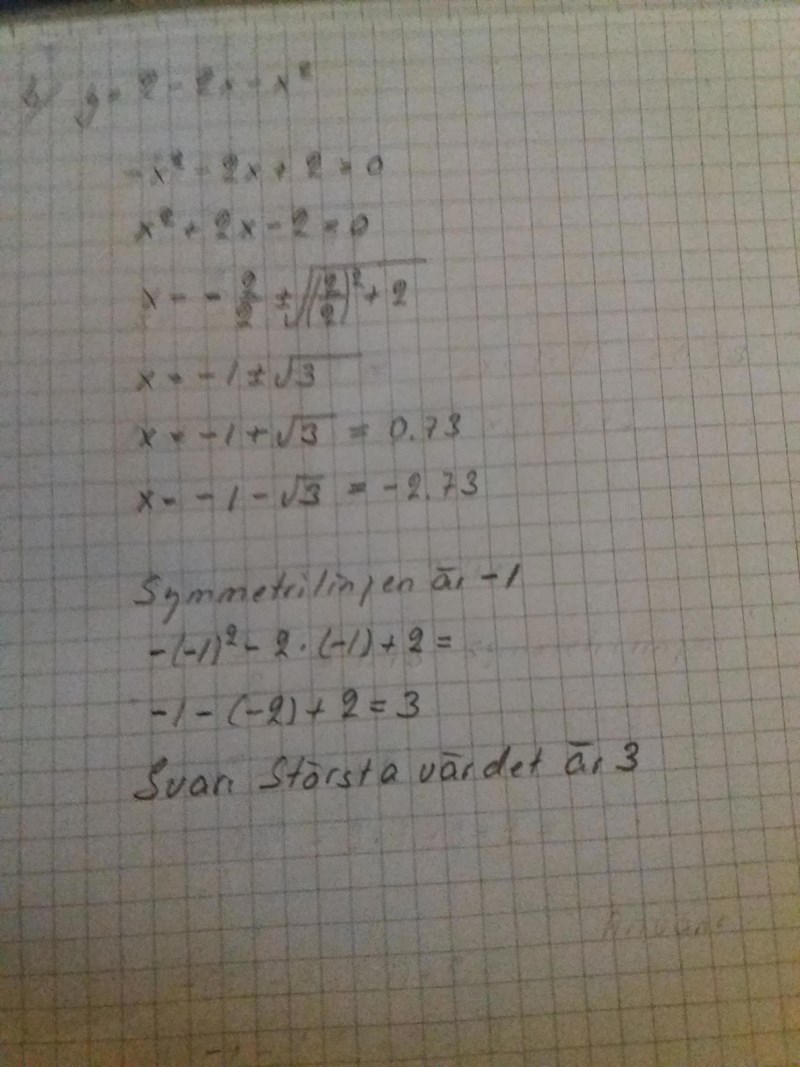 b) y = 2 - 2x - x²
-x² - 2x + 2 = 0
x² + 2x - 2 = 0
x = - 2/2 ± √((2/2)² + 2)
x = -1 ± √3
x = -1 + √3 = 0.73
x = -1 - √3 = -2.73
Symmetrilinjen är -1
-(-1)² - 2 · (-1) + 2 =
-1 - (-2) + 2 = 3
Svar: Största värdet är 3